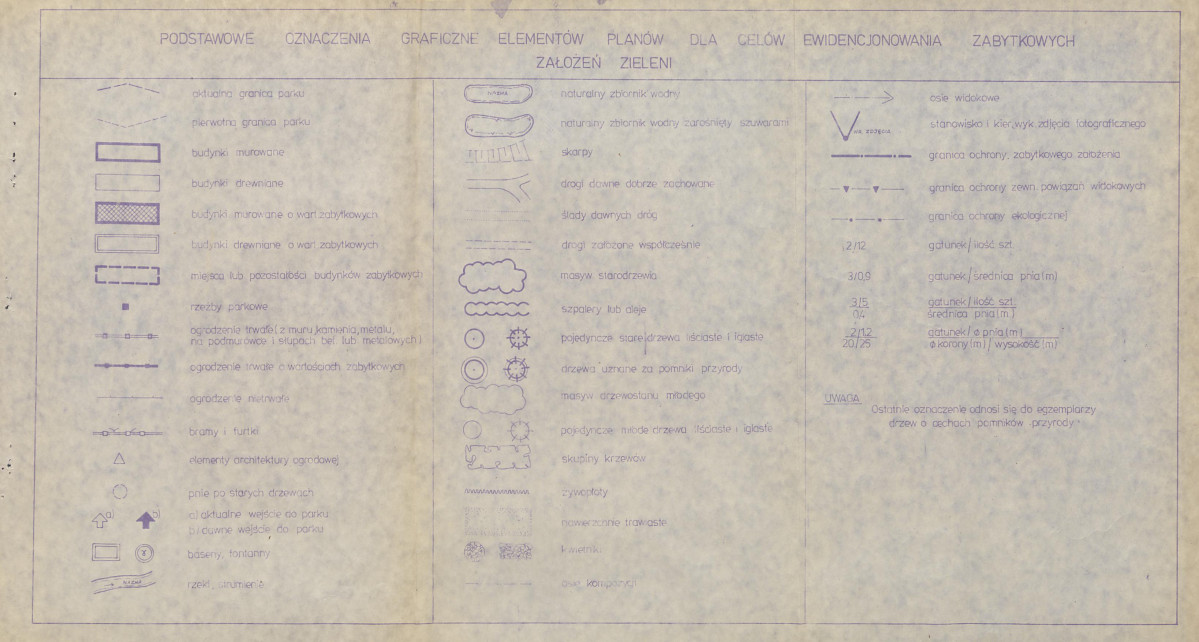 PODSTAWOWE OZNACZENIA GRAFICZNE ELEMENTÓW PLANÓW DLA CELÓW EWIDENCJONOWANIA ZABYTKOWYCH
ZAŁOŻEŃ ZIELENI
aktualna granica parku
pierwotna granica parku
budynki murowane
budynki drewniane
budynki murowane o wart. zabytkowych
budynki drewniane o wart. zabytkowych
miejsca lub pozostałości budynków zabytkowych
rzeźby parkowe
ogrodzenie trwałe (z muru, kamienia, metalu,
na podmurówce i słupach bet. lub metalowych)
ogrodzenie trwałe o wartościach zabytkowych
ogrodzenie nietrwałe
bramy i furtki
elementy architektury ogrodowej
pnie po starych drzewach
a) b) a) aktualne wejście do parku
b) dawne wejście do parku
baseny, fontanny
nazwa rzeki, strumienie
nazwa naturalny zbiornik wodny
naturalny zbiornik wodny zarośnięty szuwarami
skarpy
drogi dawne dobrze zachowane
ślady dawnych dróg
drogi założone współcześnie
masyw starodrzewia
szpalery lub aleje
pojedyncze, stare drzewa liściaste i iglaste
drzewa uznane za pomniki przyrody
masyw drzewostanu młodego
pojedyncze, młode drzewa liściaste i iglaste
skupiny krzewów
żywopłoty
powierzchnie trawiaste
kwietniki
osie kompozycji
osie widokowe
nr zdjęcia stanowisko i kier. wyk. zdjęcia fotograficznego
granica ochrony zabytkowego założenia
granica ochrony zewn. powiązań widokowych
granica ochrony ekologicznej
2/12 gatunek/ilość szt.
3/0,9 gatunek/średnica pnia (m)
3/5 gatunek/ilość szt.
0,4 średnica pnia (m)
2/1,2 gatunek/ø pnia (m)
20/25 ø korony (m)/wysokość (m)
UWAGA
Ostatnie oznaczenie odnosi się do egzemplarzy
drzew o cechach pomników przyrody